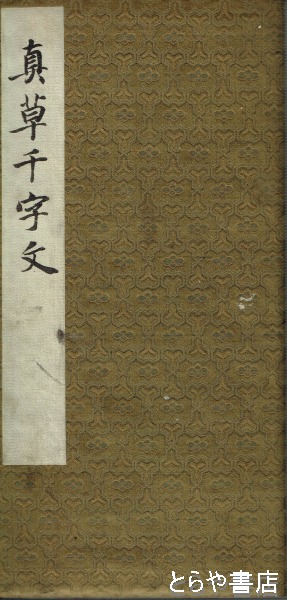 真草千字文
とらや書店